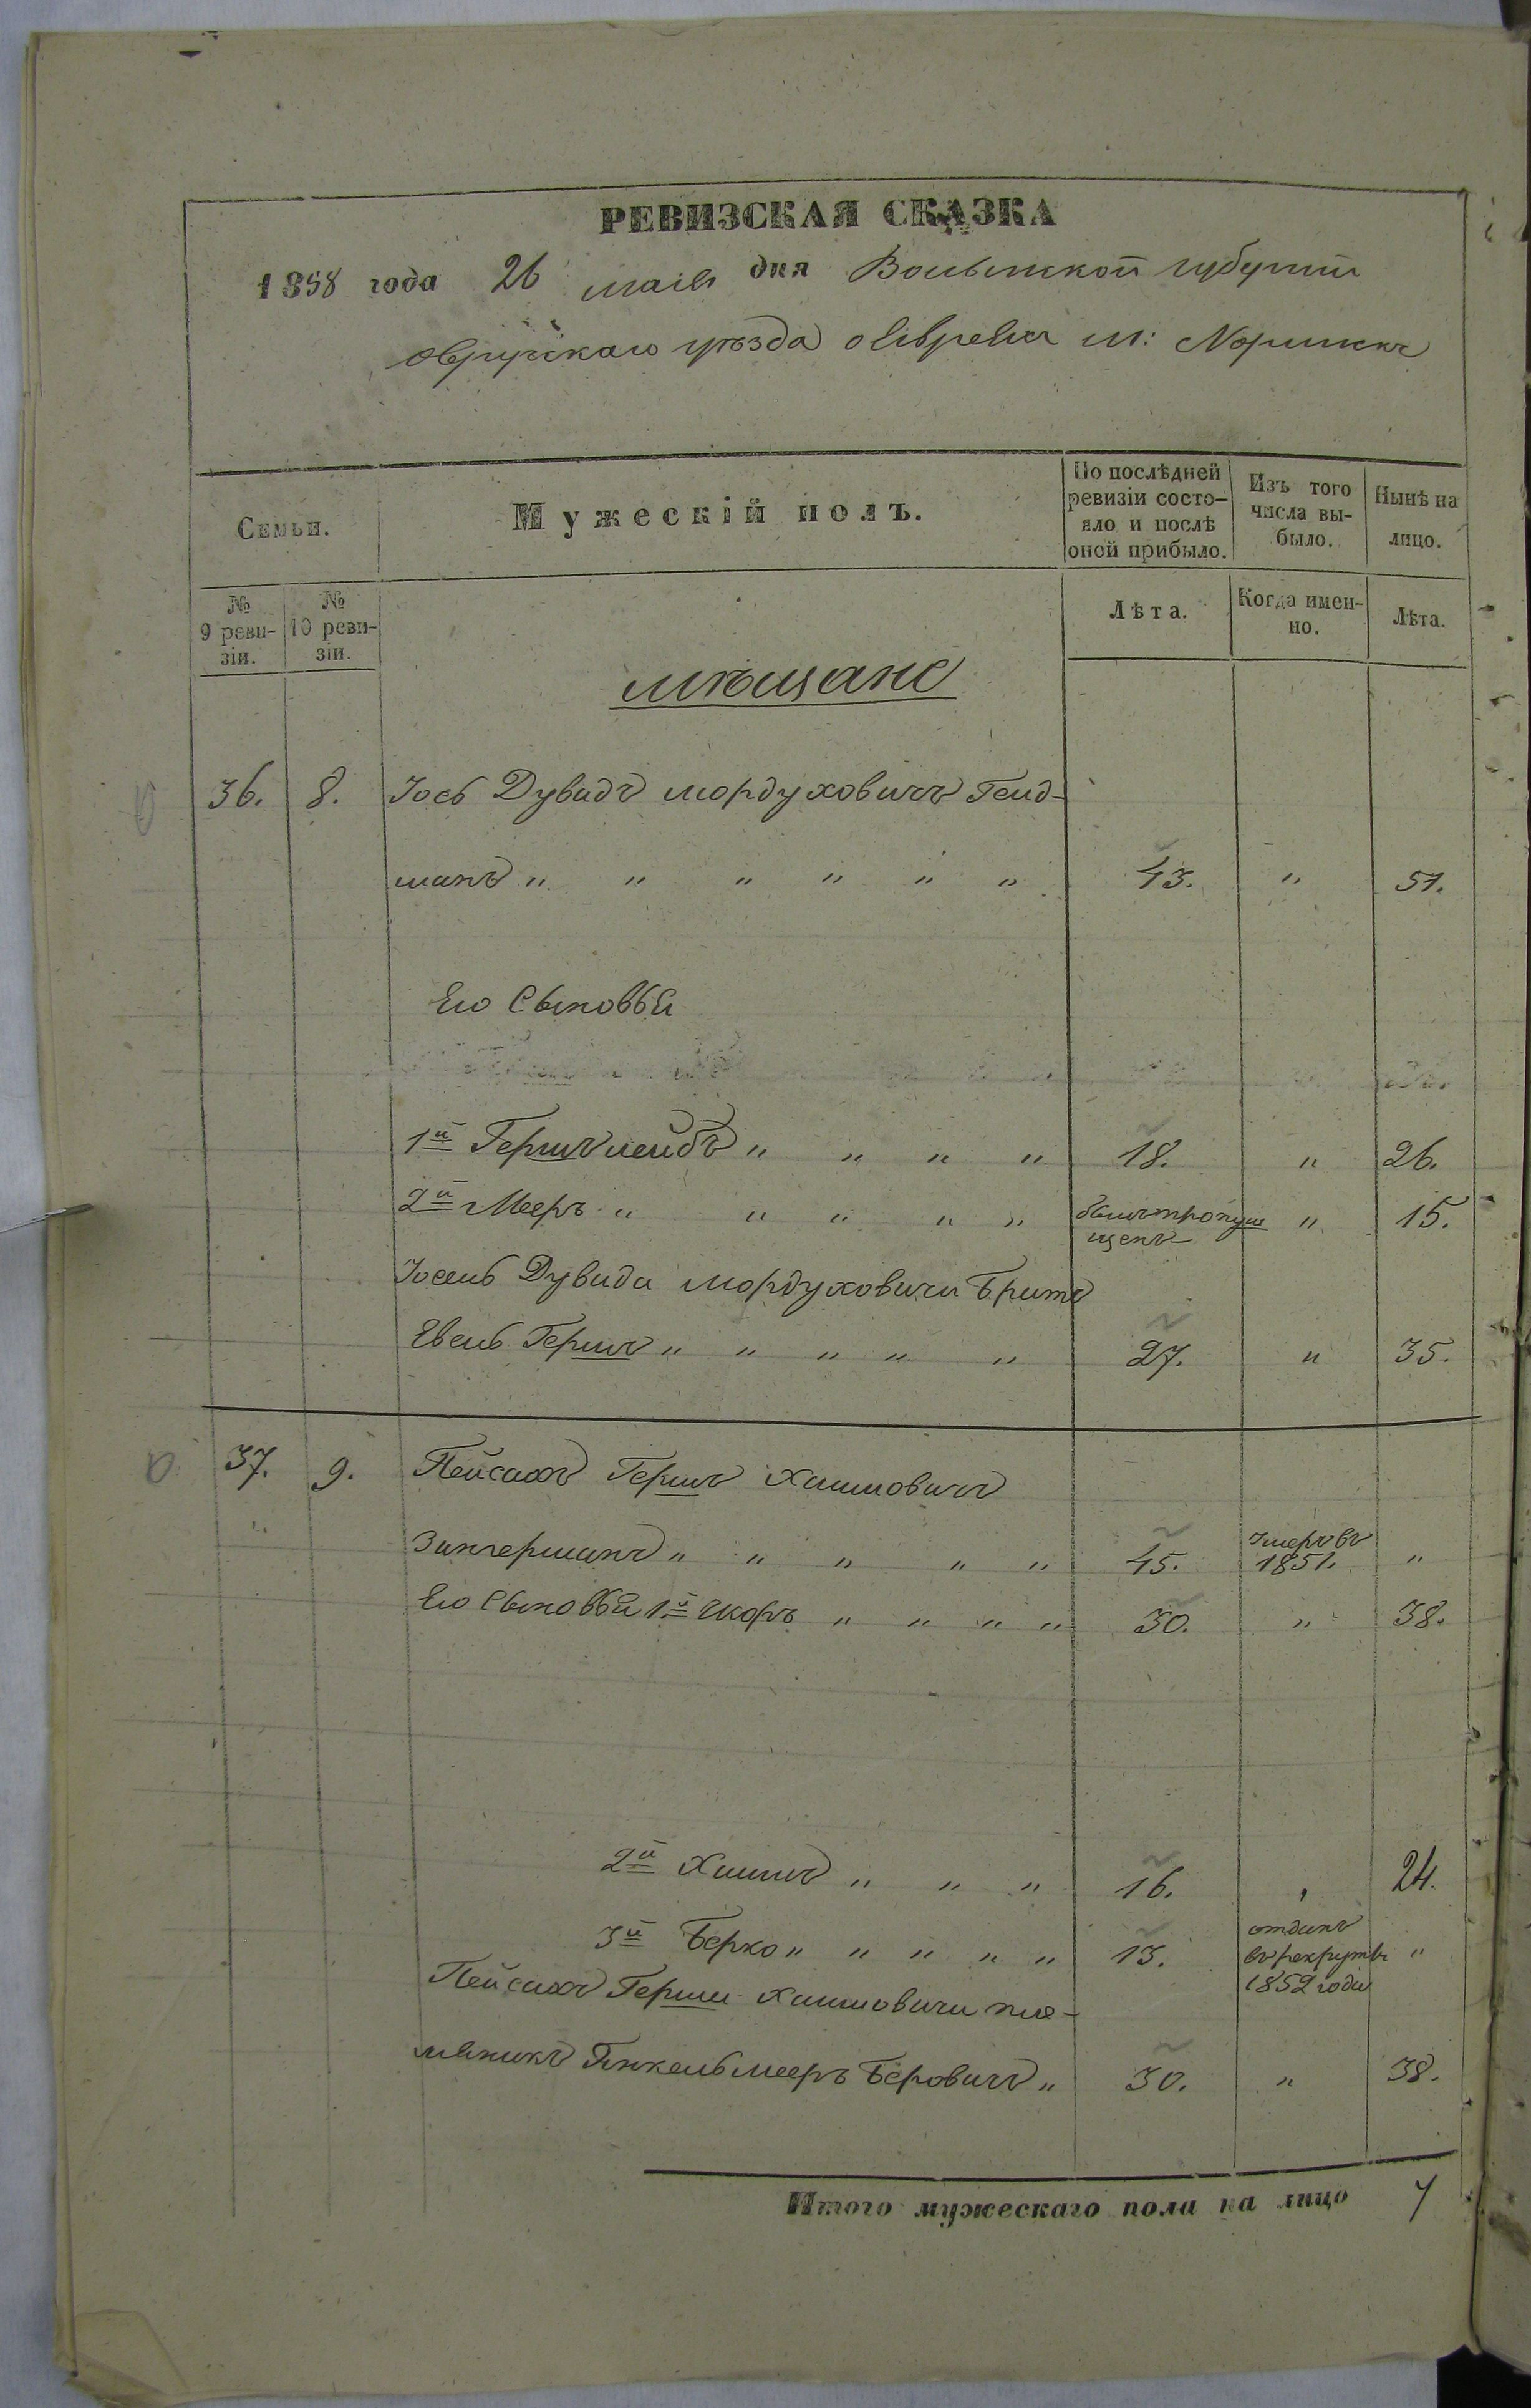 РЕВИЗСКАЯ СКАЗКА
1858 года 26 маія дня Волынской губерніи
Овручскаго уѣзда о Евреяхъ м: Норинска
Семьи.
Мужескій полъ.
По послѣдней ревизіи состояло и послѣ оной прибыло.
Изъ того числа выбыло.
Нынѣ на лицо.
№ 9 ревизіи.
№ 10 ревизіи.
Лѣта.
Когда именно.
Лѣта.
мѣщане
36. 8. Іось Дувидъ Мордуховичъ Гелд-
манъ " " " " " " 43. " 51.
Его Сыновья
1й Гершълейбъ " " " " 18. " 26.
2й Мееръ " " " " " былъ пропущенъ " 15.
Іосель Дувида Мордуховича братъ
Евель Гершъ " " " " " 27. " 35.
37. 9. Пейсахъ Гершъ Хаимовичъ
Зингерманъ " " " " " 45. Умеръ въ 1851. "
Его Сыновья 1й Шкоръ " " " " 30. " 38.
2й Хаимъ " " " 16. , 24.
3й Берко " " " " " 13. отданъ въ рекруты 1852 года "
Пейсахъ Герша Хаимовича пле-
мяникъ Янкель Мееръ Беровичъ " 30. " 38.
Итого мужескаго пола на лицо 7